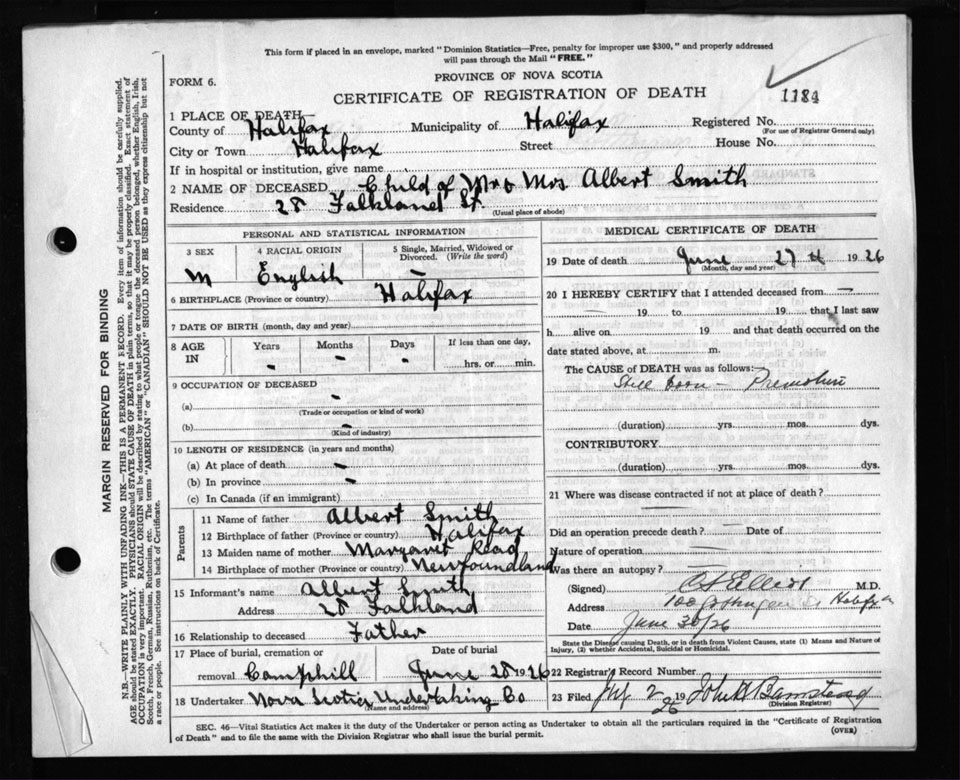 This form if placed in an envelope, marked "Dominion Statistics—Free, penalty for improper use $300," and properly addressed
will pass through the Mail "FREE."
PROVINCE OF NOVA SCOTIA
FORM 6.
CERTIFICATE OF REGISTRATION OF DEATH
1184
1 PLACE OF DEATH—
County of Halifax Municipality of Halifax Registered No.
(For use of Registrar General only)
City or Town Halifax Street House No.
If in hospital or institution, give name
2 NAME OF DECEASED Child of Mr & Mrs. Albert Smith
Residence 28 Falkland St
(Usual place of abode)
PERSONAL AND STATISTICAL INFORMATION
3 SEX 4 RACIAL ORIGIN 5 Single, Married, Widowed or
Divorced. (Write the word)
M English —
6 BIRTHPLACE (Province or country) Halifax
7 DATE OF BIRTH (month, day and year)
8 AGE IN Years Months Days If less than one day,
- - - hrs. or min.
9 OCCUPATION OF DECEASED
(a) -
(Trade or occupation or kind of work)
(b) -
(Kind of industry)
10 LENGTH OF RESIDENCE (in years and months)
(a) At place of death -
(b) In province -
(c) In Canada (if an immigrant)
Parents
11 Name of father Albert Smith
12 Birthplace of father (Province or country) Halifax
13 Maiden name of mother Margaret Read
14 Birthplace of mother (Province or country) Newfoundland
15 Informant's name Albert Smith
Address 28 Falkland
16 Relationship to deceased Father
17 Place of burial, cremation or Date of burial
removal Camphill June 28 1926
18 Undertaker Nova Scotia Undertaking Co
(Name and address)
MEDICAL CERTIFICATE OF DEATH
19 Date of death June 27th 1926
(Month, day and year)
20 I HEREBY CERTIFY that I attended deceased from —
— 19 to 19 that I last saw
h alive on 19 and that death occurred on the
date stated above, at m.
The CAUSE of DEATH was as follows:—
Still born –
(duration) yrs. mos. dys.
CONTRIBUTORY
(duration) yrs. mos. dys.
21 Where was disease contracted if not at place of death?
Did an operation precede death? — Date of
Nature of operation
Was there an autopsy? —
(Signed) M.D.
Address Halifax
Date June 30/26
State the Disease causing Death, or in death from Violent Causes, state (1) Means and Nature of
Injury, (2) whether Accidental, Suicidal or Homicidal.
22 Registrar's Record Number
23 Filed July 2 19 26 John
(Division Registrar)
SEC. 46—Vital Statistics Act makes it the duty of the Undertaker or person acting as Undertaker to obtain all the particulars required in the "Certificate of Registration
of Death" and to file the same with the Division Registrar who shall issue the burial permit.
(OVER)
MARGIN RESERVED FOR BINDING
N.B.—WRITE PLAINLY WITH UNFADING INK—THIS IS A PERMANENT RECORD. Every item of information should be carefully supplied.
AGE should be stated EXACTLY. PHYSICIANS should STATE CAUSE OF DEATH in plain terms, so that it may be properly classified. Exact statement of
OCCUPATION is very important. RACIAL ORIGIN will be described by stating to what people or tongue the deceased person belonged, whether English, Irish,
Scotch, French, German, Russian, Ruthenian, etc. The terms "AMERICAN" or "CANADIAN" SHOULD NOT BE USED as they express citizenship but not
a race or people. See instructions on back of Certificate.